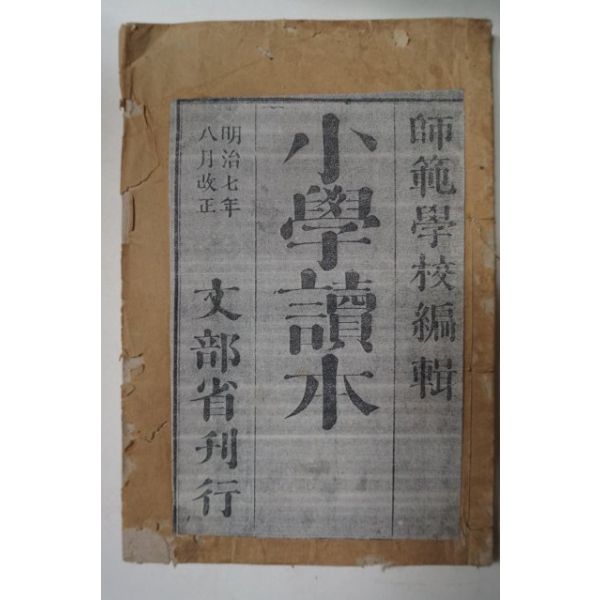 師範學校編輯
小學讀本
明治七年
八月改正
文部省刊行